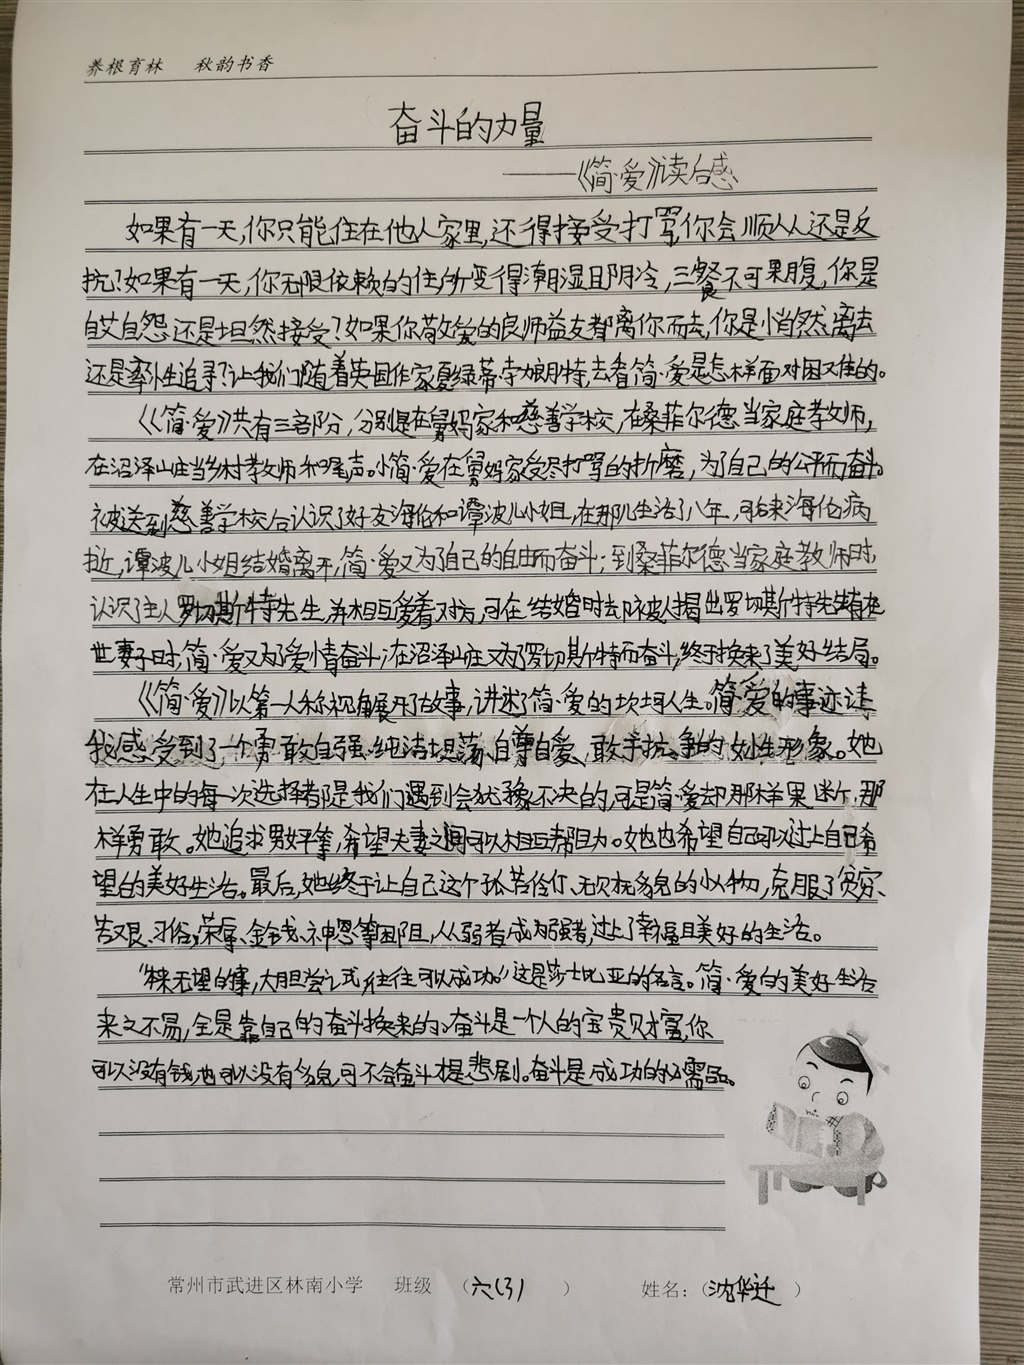 养根育林 秋韵书香
奋斗的力量
——《简·爱》读后感
如果有一天,你只能住在他人家里,还得接受打骂,你会顺从还是反
抗?如果有一天,你无限依赖的住所变得潮湿且阴冷,三餐不可果腹,你是
自艾自怨还是坦然接受?如果你敬爱的良师益友都离你而去,你是悄然离去
还是率性追寻?让我们随着英国作家夏绿蒂·勃朗特,去看简·爱是怎样面对困难的。
《简·爱》共有三部分,分别是在舅妈家和慈善学校,在桑菲尔德当家庭教师,
在沼泽山庄当乡村教师和尾声。小简·爱在舅妈家受尽打骂的折磨,为了自己的公平而奋斗。
被送到慈善学校后认识了好友海伦和谭波儿小姐,在那儿生活了八年,可后来海伦病
逝,谭波儿小姐结婚离开,简·爱又为了自己的自由而奋斗;到桑菲尔德当家庭教师时,
认识了主人罗切斯特先生,并相互爱着对方,可在结婚时却被人揭出罗切斯特先生有在
世妻子时,简·爱又为了爱情奋斗;在沼泽山庄又为了罗切斯特而奋斗,终于换来了美好结局。
《简·爱》以第一人称视角展开了故事,讲述了简·爱的坎坷人生。简·爱的事迹让
我感受到了一个勇敢自强、纯洁坦荡、自尊自爱、敢于抗争的女性形象。她
在人生中的每一次选择都是我们遇到会犹豫不决的,可是简·爱却那样果断,那
样勇敢。她追求男女平等,希望夫妻之间可以相互帮助。她也希望自己可以过上自己希
望的美好生活。最后,她终于让自己这个孤苦伶仃、无财无貌的小人物,克服了贫穷、
苦艰、习俗、荣辱、金钱、神恩等困阻,从弱者成为强者,过上了幸福且美好的生活。
“本来无望的事,大胆尝试,往往可以成功。”这是莎士比亚的名言。简·爱的美好生活
来之不易,全是靠自己的奋斗换来的。奋斗是一个人的宝贵财富,你
可以没有钱,也可以没有貌,可不会奋斗才是悲剧。奋斗是成功的必需品。
常州市武进区林南小学 班级 (六(3) ) 姓名:(沈华迁 )